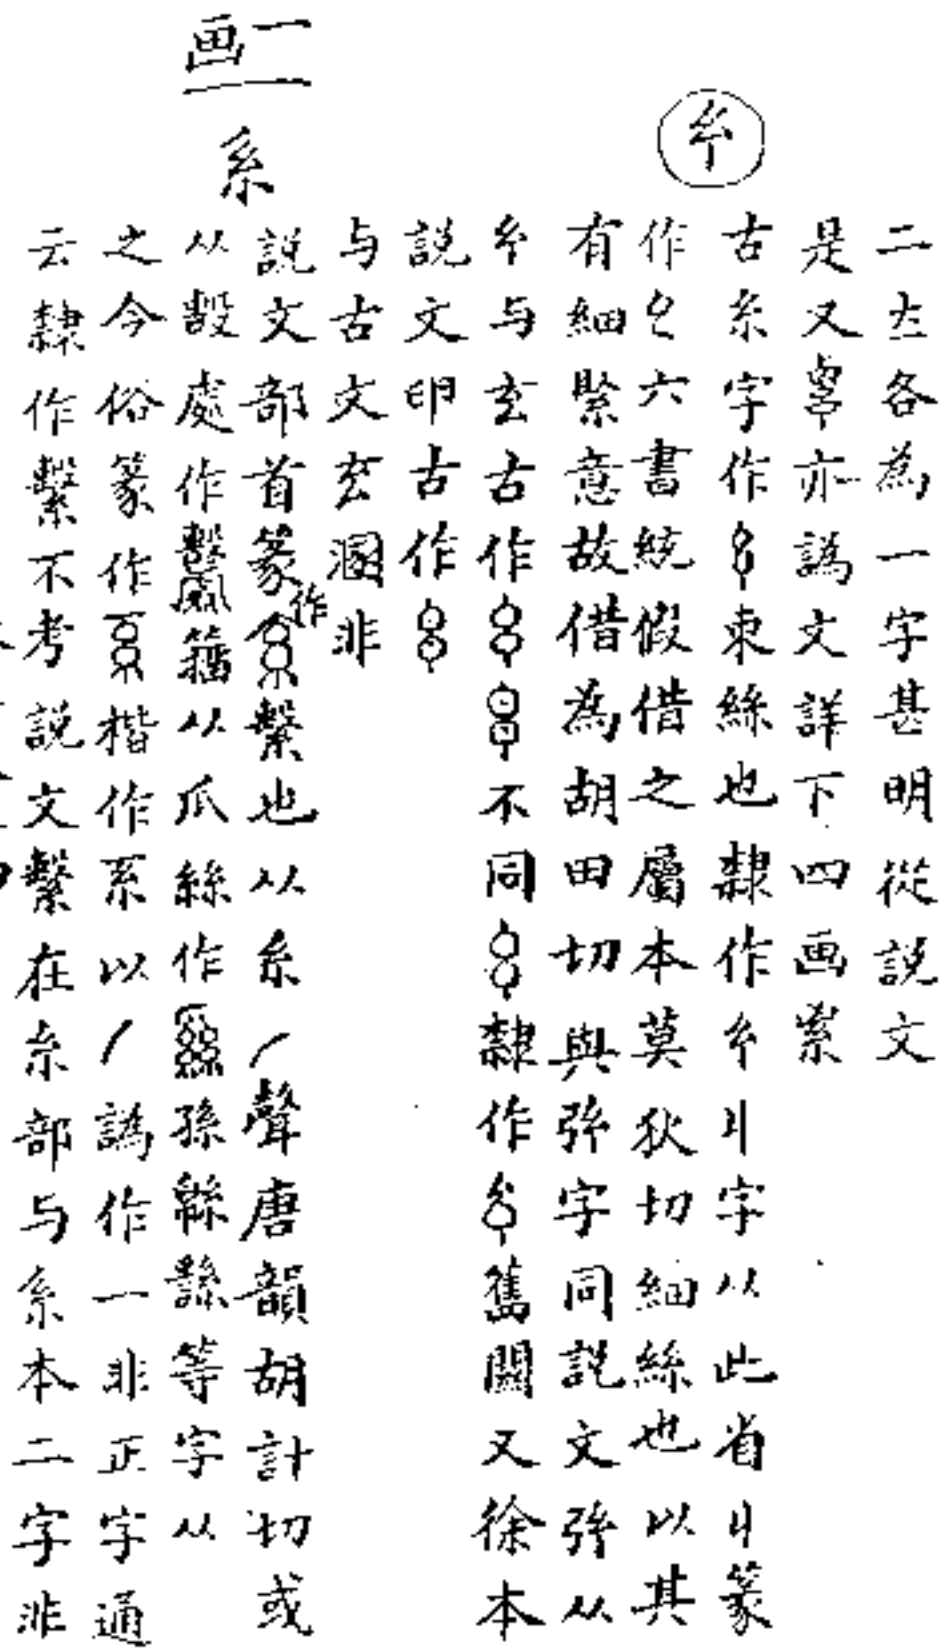 二㔫各為一字甚明從説文
是又亦譌文詳下四画
古糸字作束絲也隸作丩字从此省丩篆
作六書統假借之屬本莫狄切細絲也以其
有細緊意故借為胡田切與字同説文从
与玄古作不同隸作舊闕又徐本
説文卬古作
与古文玄溷非
一画
系
説文部首篆作繫也从糸丿聲唐韻胡計切或
从毄處作籒从爪絲作孫緜繇等字从
之今俗篆作楷作系以丿譌作一非正字通
云隸作繫不考説文繫在糸部与系本二字非